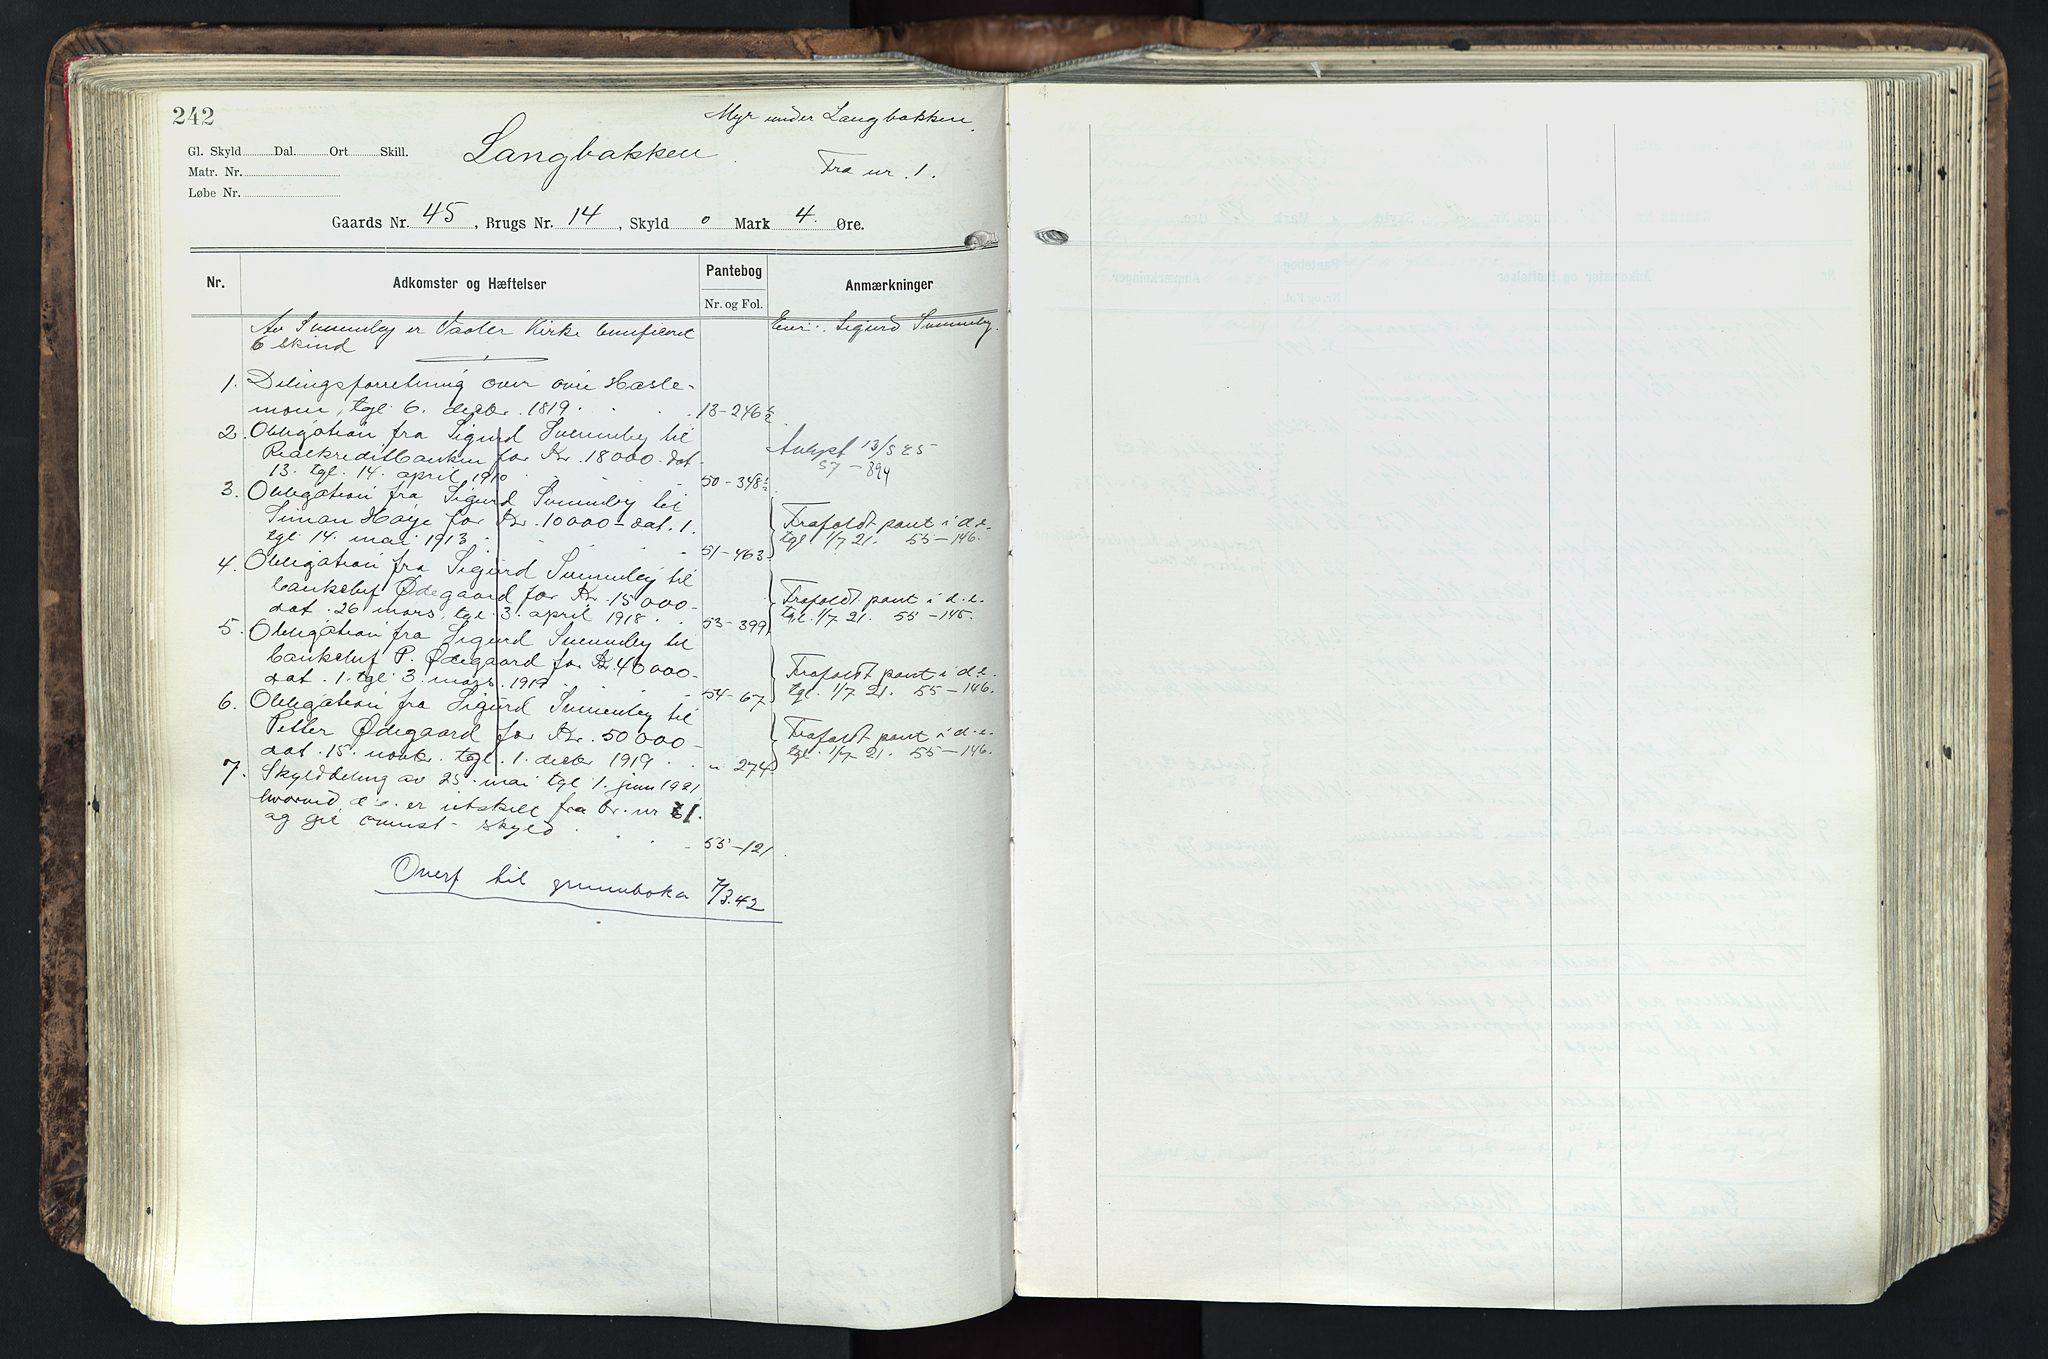 242
Myr under Langbakken.
Gl. Skyld Dal. Ort Skill.
Langbakken.
Matr. Nr.
Fra nr. 1.
Løbe Nr.
Gaards Nr. 45, Brugs Nr. 14, Skyld 0 Mark 4. Øre.
Nr.
Adkomster og Hæftelser
Pantebog
Nr. og Fol.
Anmærkninger
Av Svenneby er Vaaler Kirke beneficeret
6 skind
Eier: Sigurd Svenneby.
1. Delingsforretning over øvre Hasle-
moen, tgl. 6. decbr. 1819. 13-246 1/2
2. Obligation fra Sigurd Svenneby til
Realkreditbanken for Kr. 18000. dat.
13. tgl. 14. april 1910 50-348 1/2
Avlyst 13/5 25
57-894
3. Obligation fra Sigurd Svenneby til
Simon Høye for Kr. 10000- dat. 1.
tgl. 14. mai 1913 51-463
Frafaldt pant i d.e.
tgl. 1/7 21. 55-146.
4. Obligation fra Sigurd Svenneby til
bankchef Ødegaard for Kr. 15000-
dat. 26 mars, tgl. 3. april 1918 53-399
Frafaldt pant i d.e.
tgl. 1/7 21. 55-145.
5. Obligation fra Sigurd Svenneby til
bankchef P. Ødegaard for Kr. 40000-
dat. 1. tgl. 3. mars 1919 54-67
Frafaldt pant i d.e.
tgl. 1/7 21. 55-146.
6. Obligation fra Sigurd Svenneby til
Petter Ødegaard for Kr. 50000-
dat. 15. novbr. tgl. 1. decbr 1919 " 274
Frafaldt pant i d.e.
tgl. 1/7 21. 55-146.
7. Skylddeling av 25. mai tgl. 1. juni 1921
hvorved d.e. er utskilt fra br. nr 1.
og git ovenst. skyld 55-121
Overf til grunnboka 7/3.42